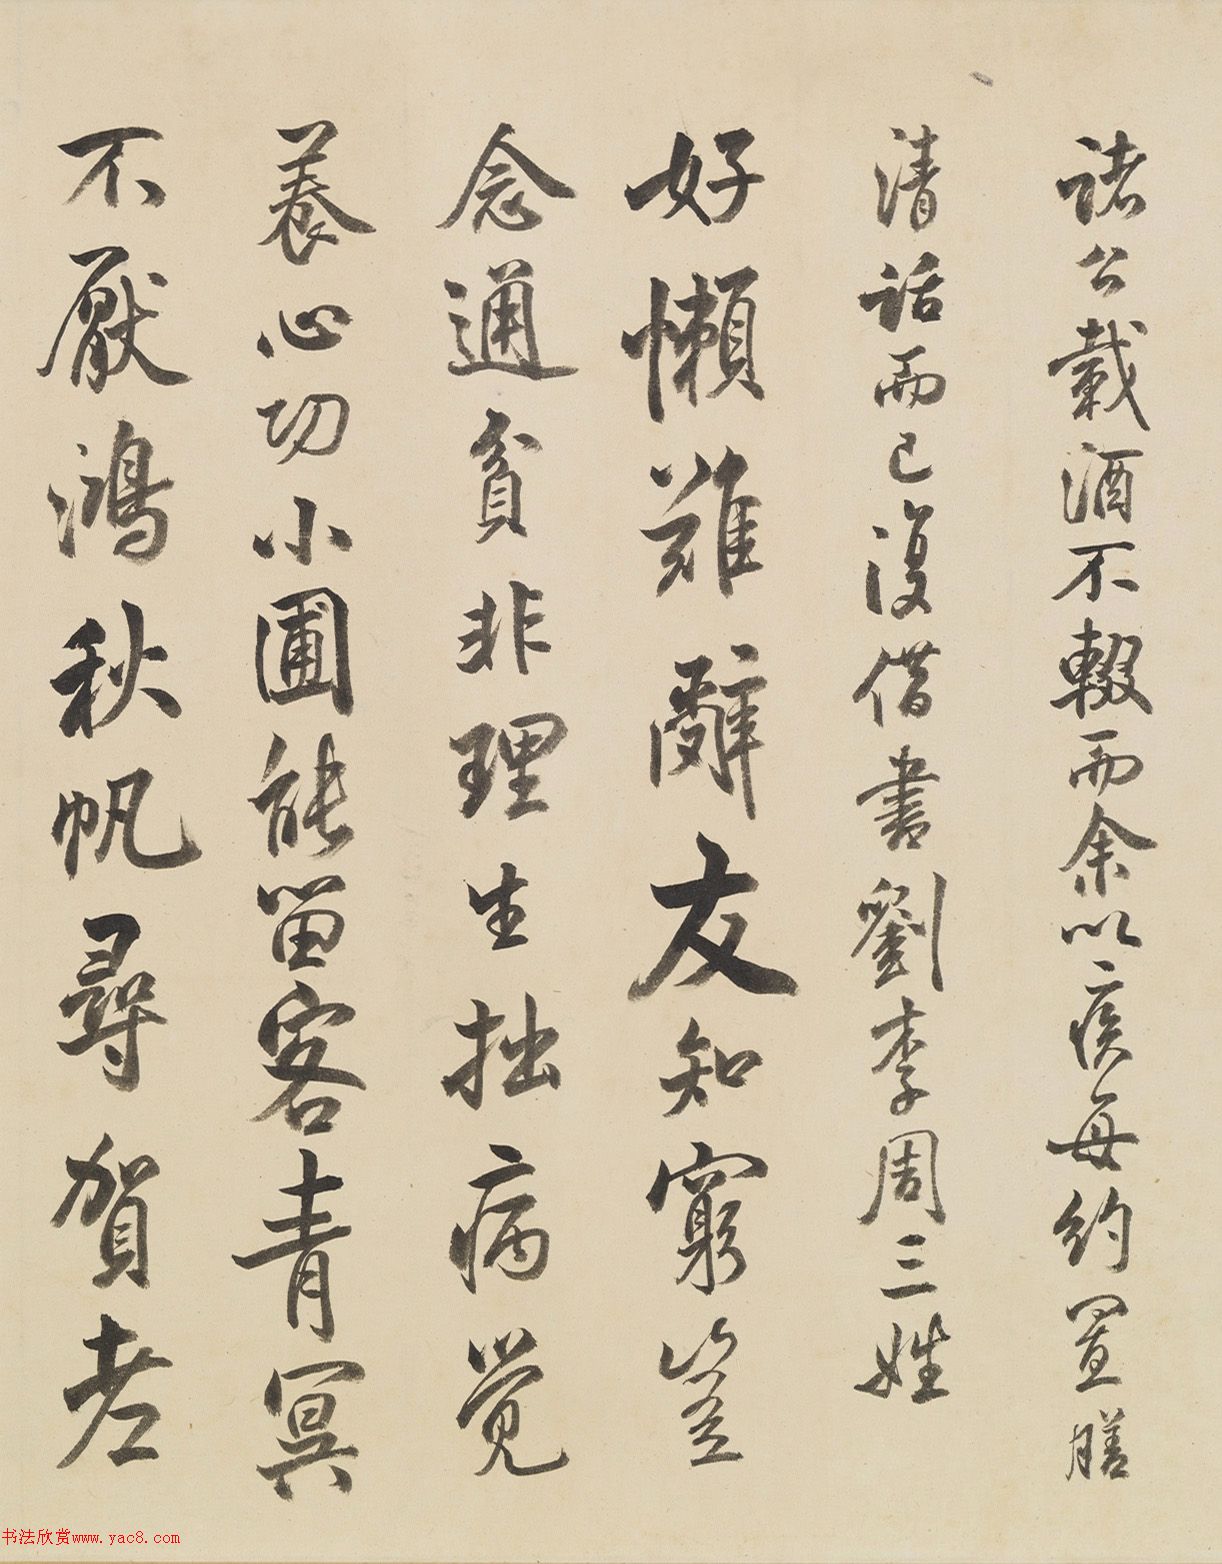 諸公載酒不輟而余以疾每約置膳
清話而已復借書劉李周三姓
好懶難辭友知窮豈
念通貧非理生拙病覺
養心功小圃能留客青冥
不厭鴻秋帆尋賀老
书法欣赏www.yac8.com